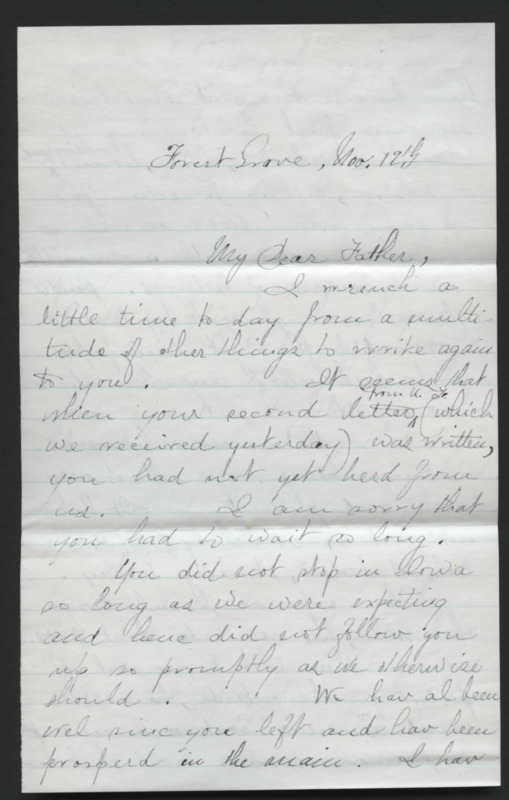 Forest Grove, Nov. 19th
My Dear Father,
I wrench a
little time to day from a multi
tude of other things to write again
to you. It seems that
when your second letter, (which
from U.
we received yesterday) was written,
you had not yet herd from
us. I am sorry that
you had to wait so long.
You did not stop in Iowa
so long as we were expecting
and henc did not follow you
up so promptly as we otherwise
should. We hav al been
wel sinc you left and hav been
prosperd in the main. I hav